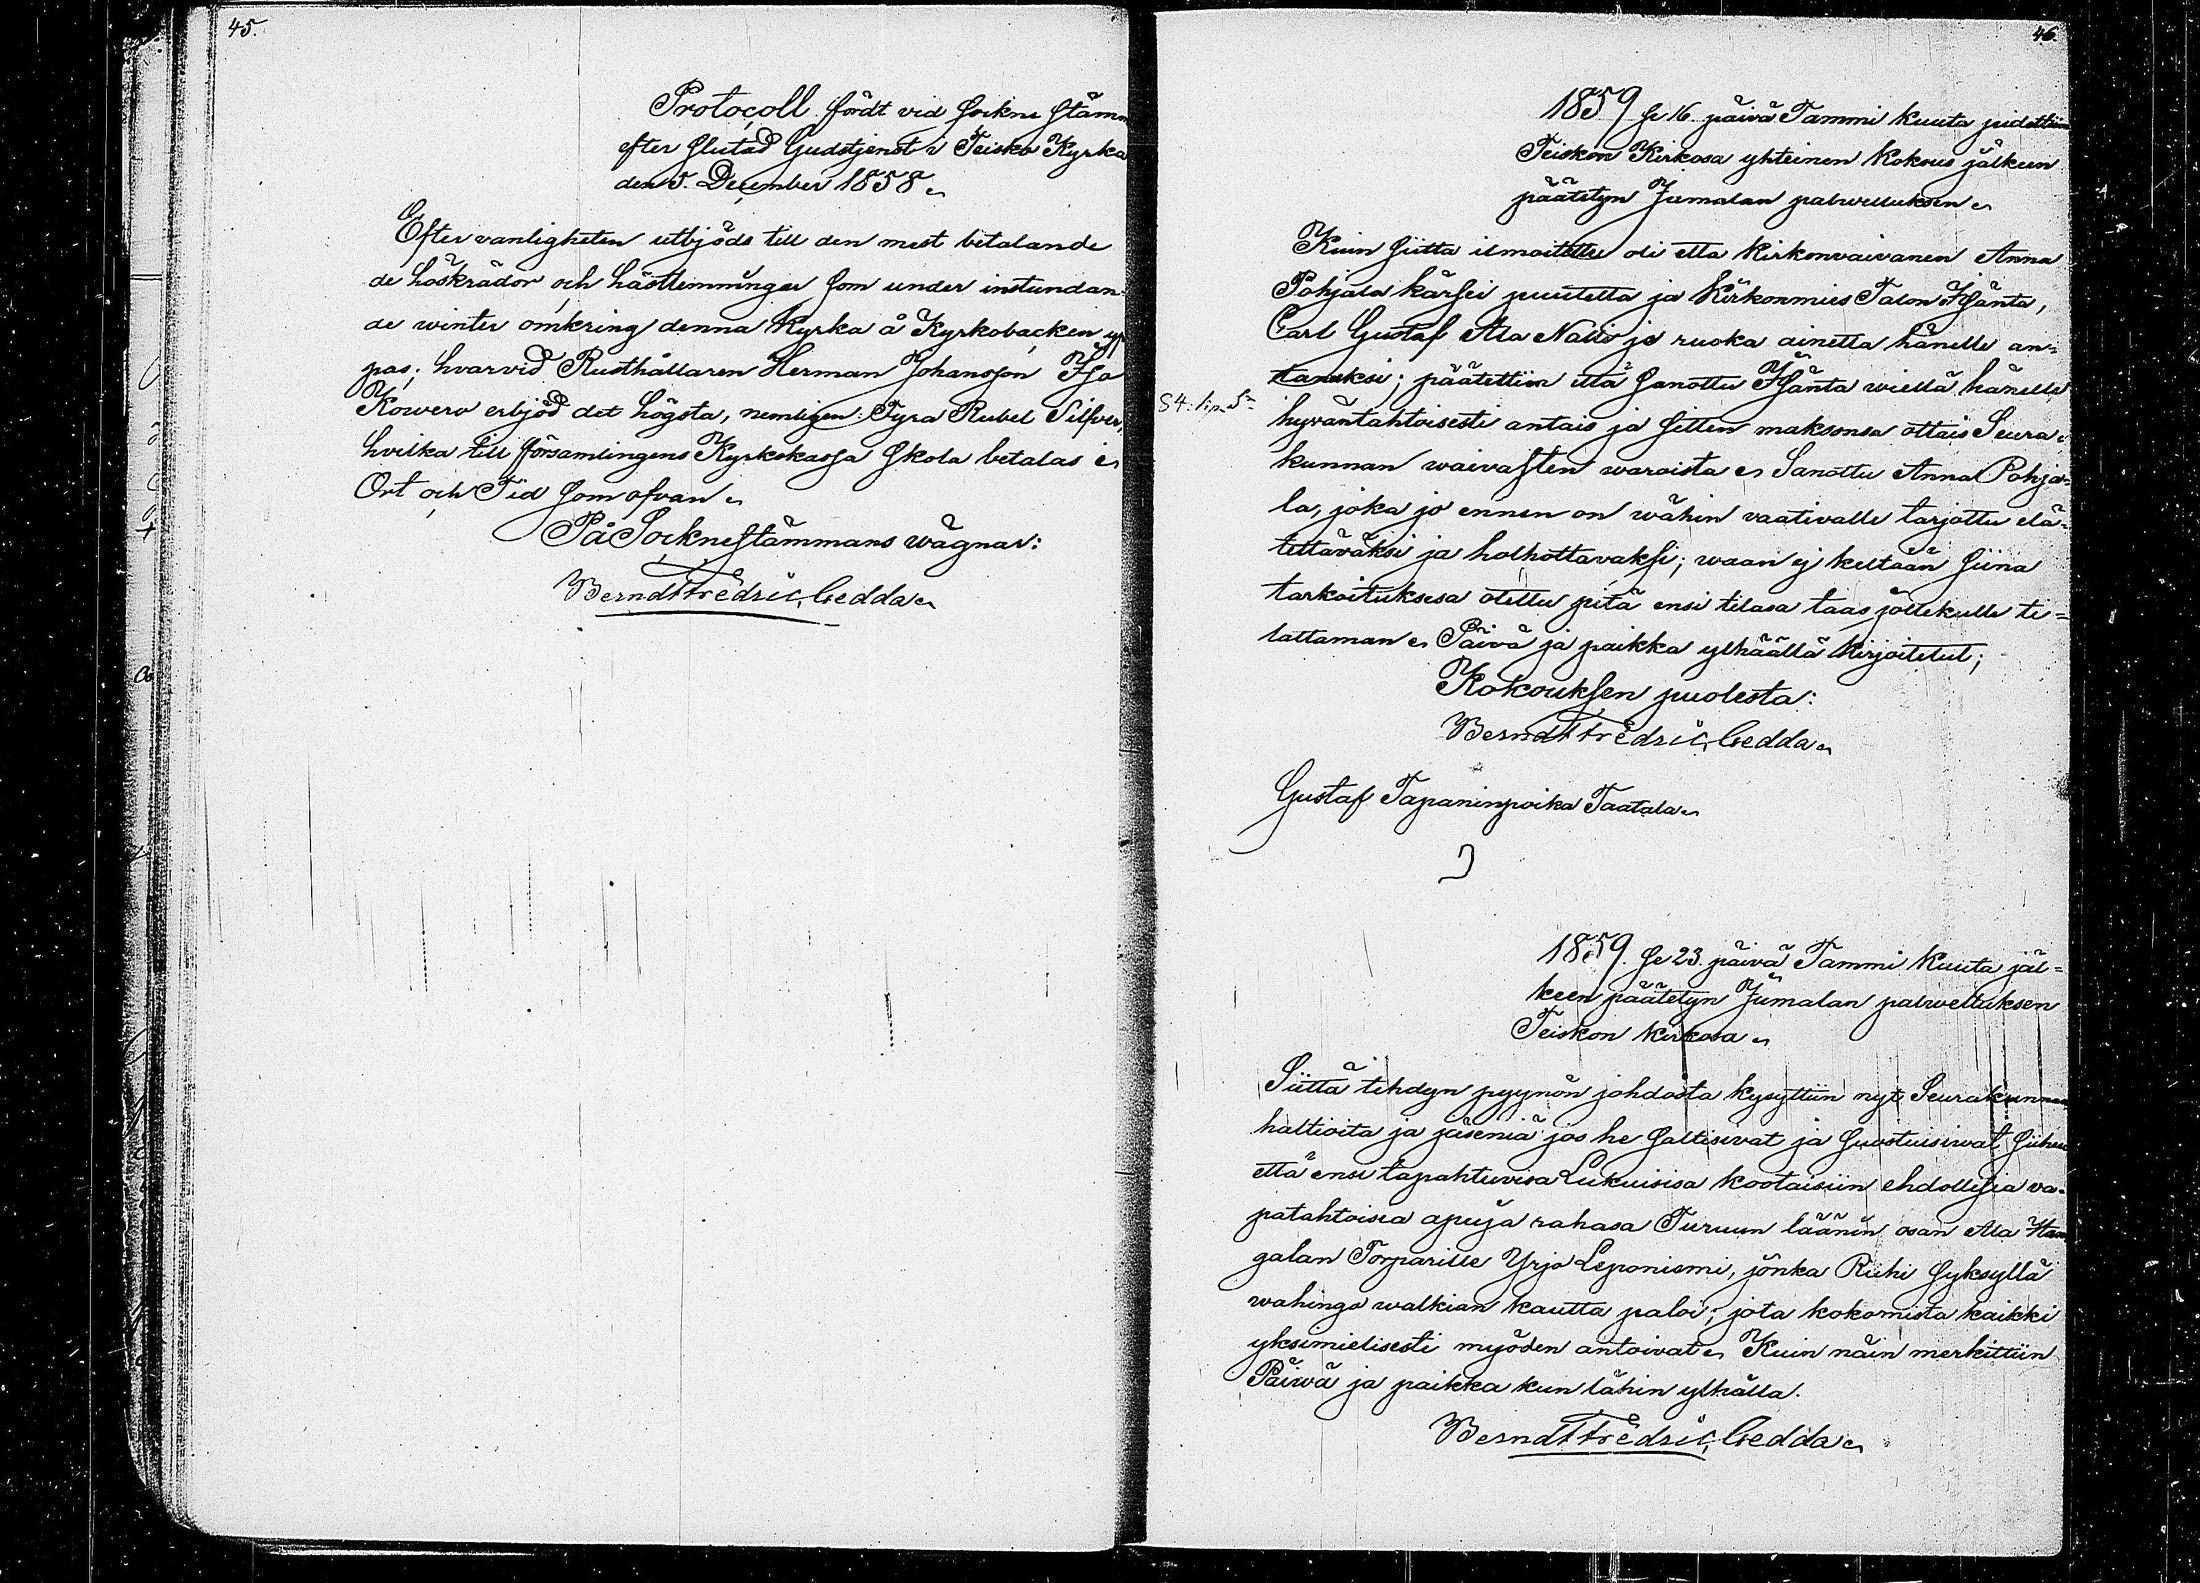 45.
Protocoll fördt vid Sockne Stäm
efter Slutad Gudstjenst i Teisko Kyrka
den 5. December 1858.
Efter vanligheten utbjöds till den mest betalande
de höskrädor och hästlemningar som under instundan-
de winter omkring denna Kyrka å Kyrkobacken up
pas; hvarvid Rusthållaren Herman Johansson Iso
Kowero erbjöd det högsta, nemligen: Fyra Rubel Silfver,
hvilka till församlingens Kyrkokassa Skola betalas
Ort och Tid Som ofvan
På Socknestämmans wägnar:
Berndt Fredric Gedda
46.
1859 se 16. päivä Tammi kuuta pidettiin
Teiskon Kirkosa yhteinen Kokous jälkeen
päätetyn Jumalan palwelluksen
Kuin siitta ilmoitettu oli etta kirkonvaivanen Anna
Pohjala kärsei puutetta ja Kirkonmies Talon Isäntä,
Carl Gustaf Ala Nallo jo ruoka ainetta hänelle an-
tanuksi; päätettiin että sanottu Isäntä wiellä hänelle
S4. lip. 5
hyväntahtoisesti antais ja sitten maksonsa ottais Seura-
kunnan waivasten waroista Sanottu Anna Pohja-
la, joka jo ennen on wähin vaativalle tarjottu elä-
tettäväksi ja holhottavaksi; waan ej keltään siina
tarkoituksesa otettu pitä ensi tilasa taas jollekulle ti-
lattaman Päivä ja paikka ylhäällä kirjoitetut;
Kokouksen puolesta:
Berndt Fredric Gedda
Gustaf Tapaninpoika Taatala
1859. se 23. päivä Tammi kuuta jäl-
keen päätetyn Jumalan palweluksen
Teiskon kirkosa
Siittä tehdyn pyynön johdosta kysyttiin nyt Seurakunnan
haltioita ja jäseniä jos he saltisivat ja suostuisivat siihen
että ensi tapahtuvisa Lukuisisa kootaisiin ehdollisia va-
patahtoisia apuja rahasa Turuun läänin osan Ala
galan Torparille Yrjö Leponiemi, jonka Riihi syksyllä
wahingo walkian kautta paloi; jota kokomista kaikki
yksimielisesti myöden antoivat Kuin näin merkittiin
Päivä ja paikka kun lähin ylhällä.
Berndt Fredric Gedda